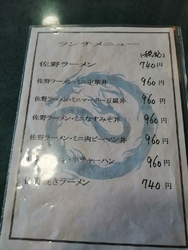 ランチメニュー
(税込)
佐野ラーメン 740円
佐野ラーメン・ミニ中華丼 960円
佐野ラーメン・ミニマーボー豆腐丼 960円
佐野ラーメン・ミニなすみそ丼 960円
佐野ラーメン・ミニ肉ピーマン丼 960円
チャーハン 960円
ラーメン 740円